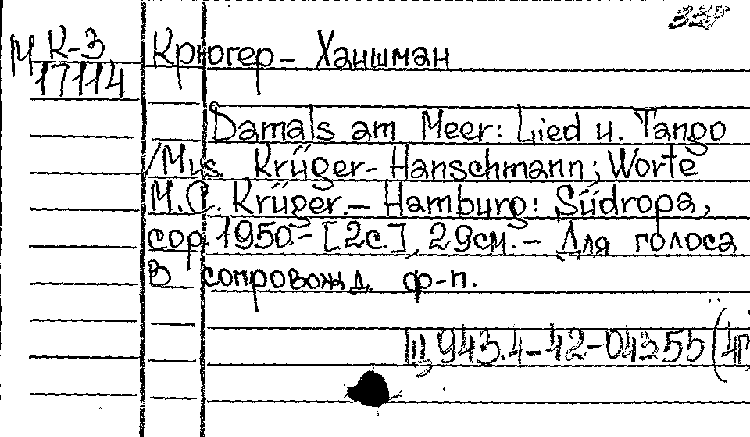 М К-3 Крюгер- Ханшман
17114
Damals am Meer: Lied u. Tango
/Mus. Krüger-Hanschmann; Worte
M.C. Krüger.- Hamburg: Südropa,
cop. 1950.- [2с.], 29см.- Для голоса
в сопровожд. ф-п.
Щ943.4-42-04355